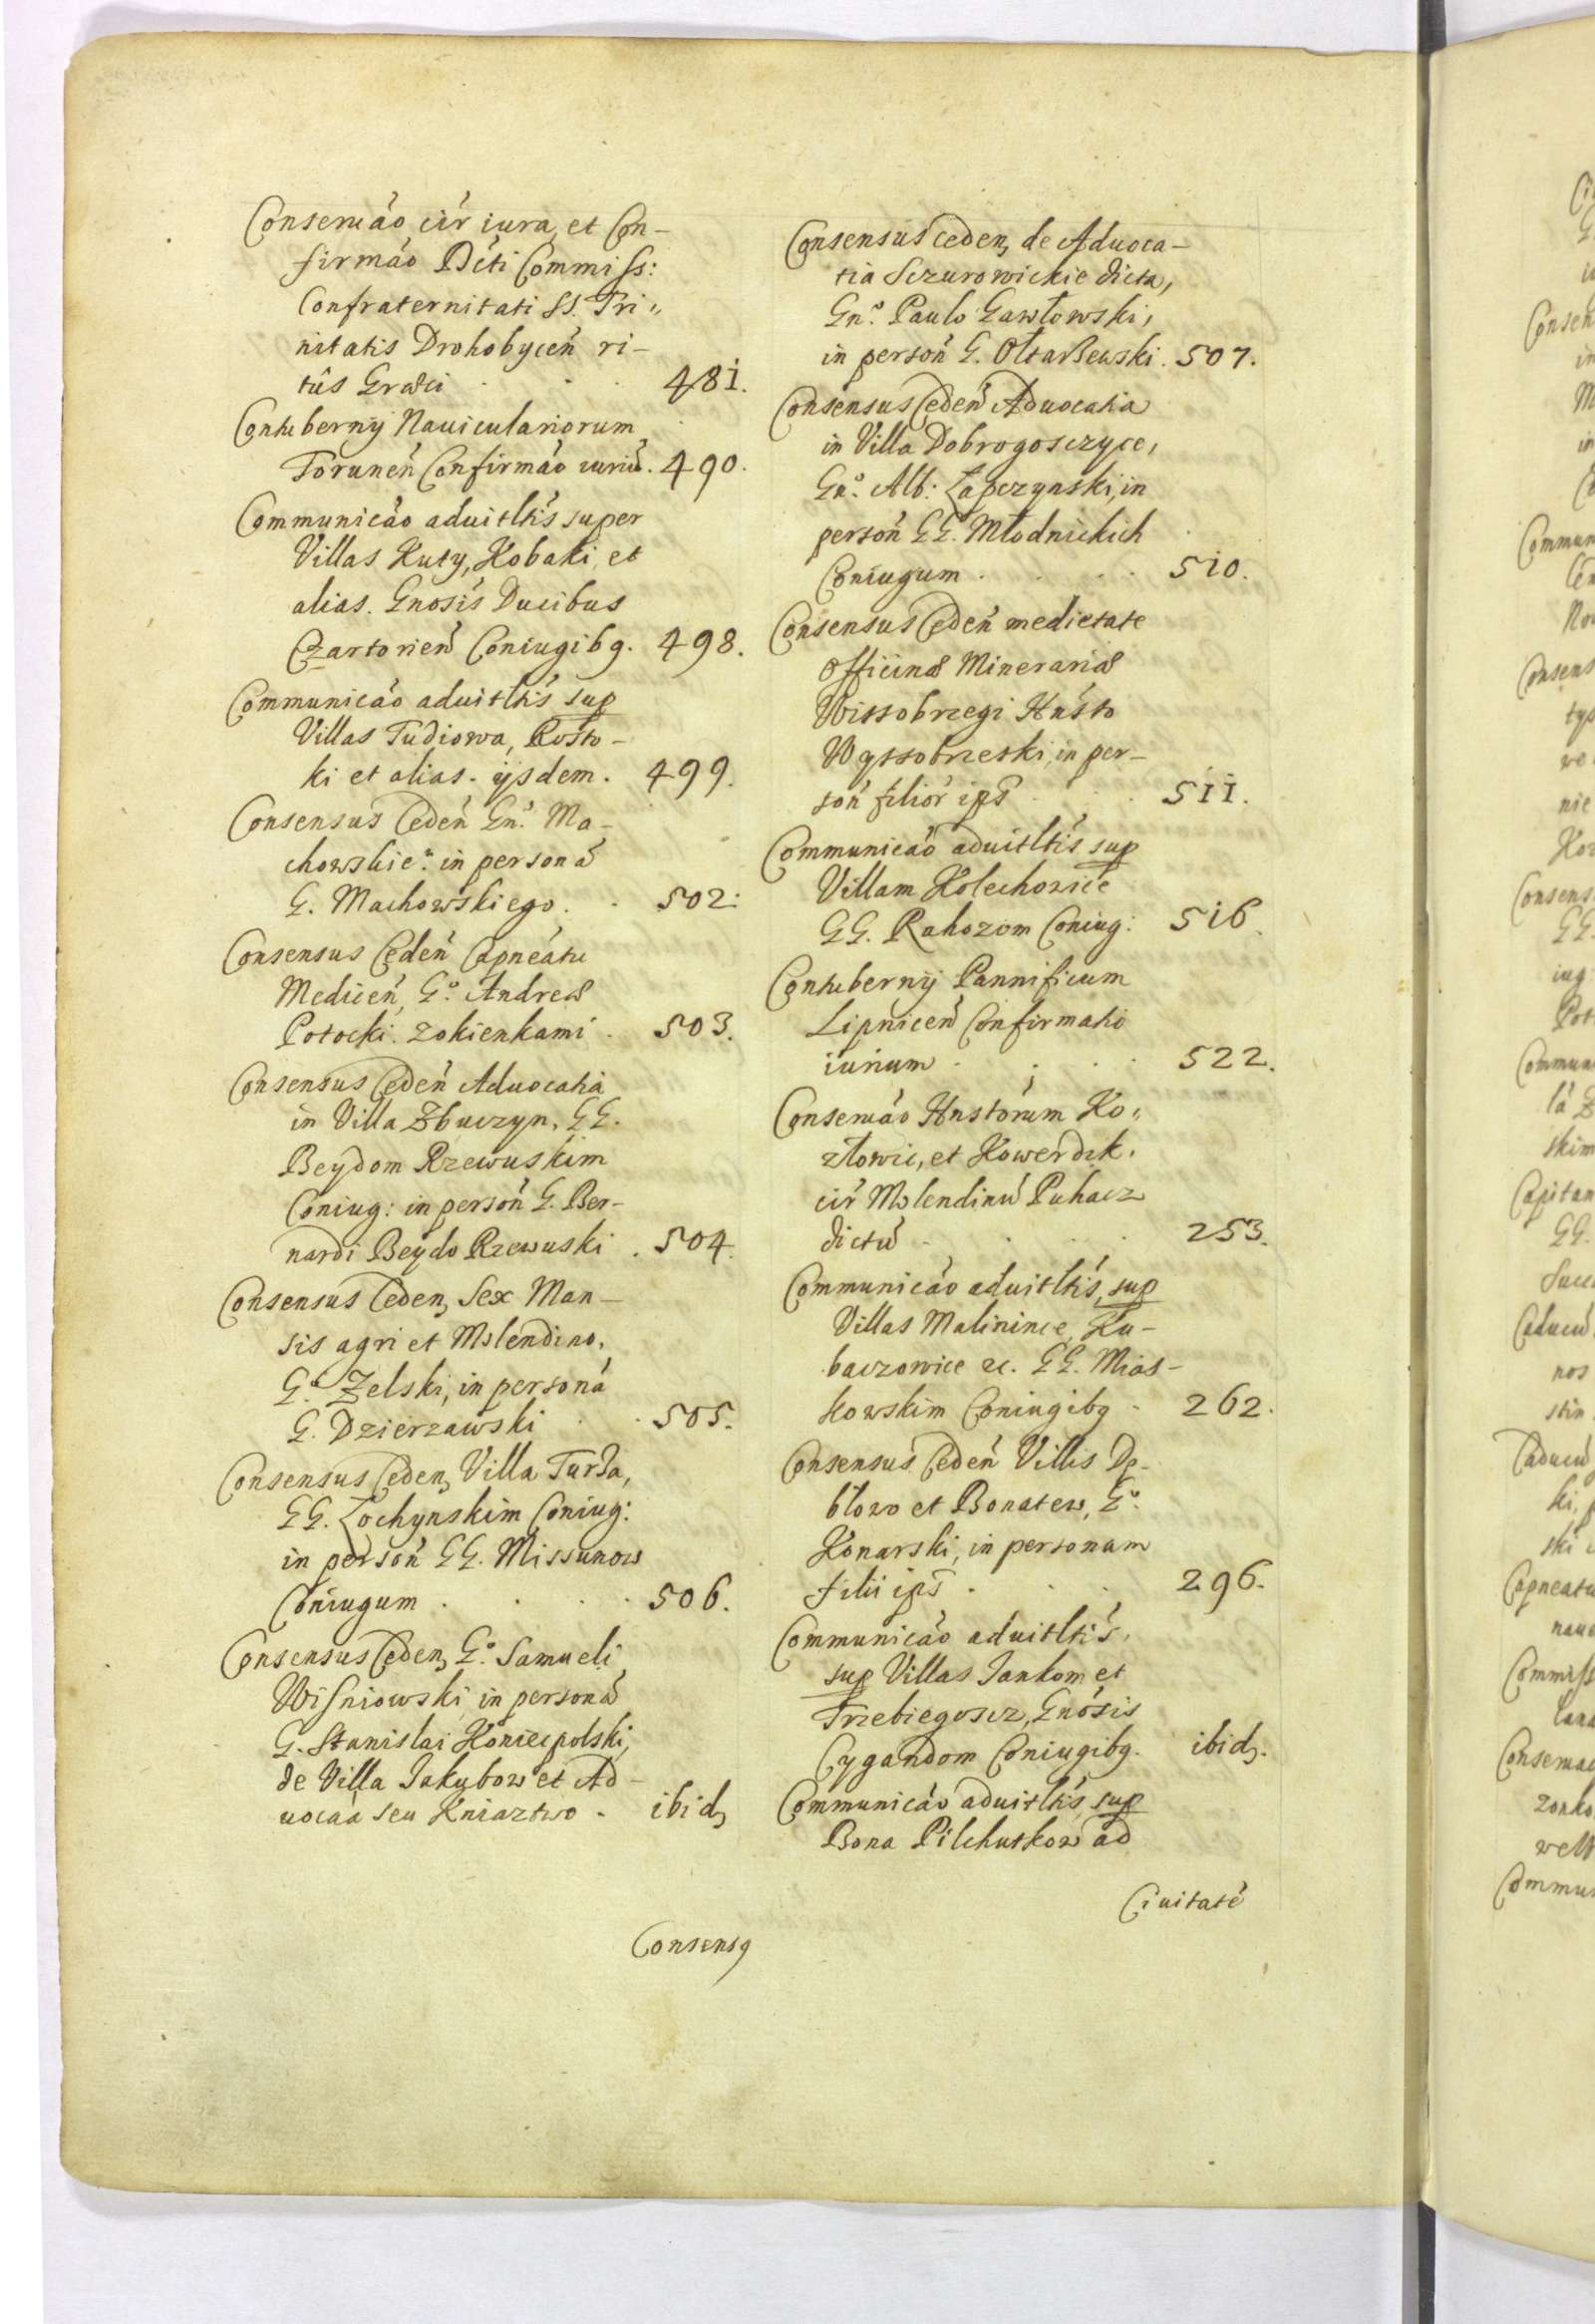 Conseruáo cir̃ iura, et Con-
firmáo Dćti Commiss:
Confraternitati SS. Tri„
nitatis Drohobyceń ri-
tûs Græci . . . 481.
Contubernÿ Nauiculariorum
Toruneń Confirmáo iuriũ. 490.
Communicáo aduitltís super
Villas Kuty, Kobaki, et
alias. Gnosís Ducibus
Czartorień Coniugibg. 498.
Communicáo aduitltís sup
Villas Tudiowa, Rosto-
ki et alias. ÿsdem. 499.
Consensus Cedeń Gń. Ma-
chowskie: in personã
G. Machowskiego. . 502:
Consensus Cedeń Capneátu
Mediceń, G.º Andreæ
Potocki. zokienkami . 503.
Consensus Cedeń Aduocatiã
in Villa Zbuczyn, GG.
Beydom Rzewuskim
Coniug: in personˊ G. Ber-
nardi Beydo Rzewuski . 504.
Consensus Ceden, Sex Man-
sis agri et Molendino,
G.º Zelski, in personã
G. Dzierzawski . . 505.
Consensus Ceden, Villa Turza,
GG. Zochynskim Coniug:
in personˊ GG. Missunow
Coniugum . . . . 506.
Consensus Ceden, G.º Samueli
Wisniowski in personã
G. Stanislai Koniecpolski,
de Villa Jakubow et Ad-
uocaã seu Kniaztwo . ibid,
Consensg
Consensus ceden, de Aduoca-
tia Sczurowickie dicta,
Gn.º Paulo Gawłowski,
in personˊ G. Ołtarzewski. 507.
Consensus Cedeń Aduocatia
in Villa Dobrogosczyce,
Gn.º Alb: Łapczynski, in
personˊ GG. Młodnickich
Coniugum . . . . 510.
Consensus Cedeń medietate
officinæ Minerariæ
Wissobrzegi Hństo
Wyssobrzeski, in per-
sonˊ filiorˊ ips̃ . . 511.
Communicáo aduitltís sup
Villam Kolechowice
GG. Rahozom Coniug: 516.
Contubernÿ Pannificum
Lipniceń Confirmatio
iurium . . . . 522.
Conseruáo Hnstórum Ko„
złowic, et Kowerdzk.
cir̃ Molendinũ Puhacz
dictũ . . . . 253.
Communicáo aduitltís, sup
Villas Malinince, Ku-
baczowice &c. GG. Mias-
kowskim Coniugibg . 262.
Consensus Cedeń Villis Dę-
błowo et Bonatew, G.º
Konarski, in personam
filii ips̃ . . . 296.
Communicáo aduitltís,
sup Villas Jankom et
Trzebiegoscz, Gnósis
Cygandom Coniugibg. ibid,.
Communicáo aduitltís, sup
Bona Pilchutkow ad
Ciuitatẽ